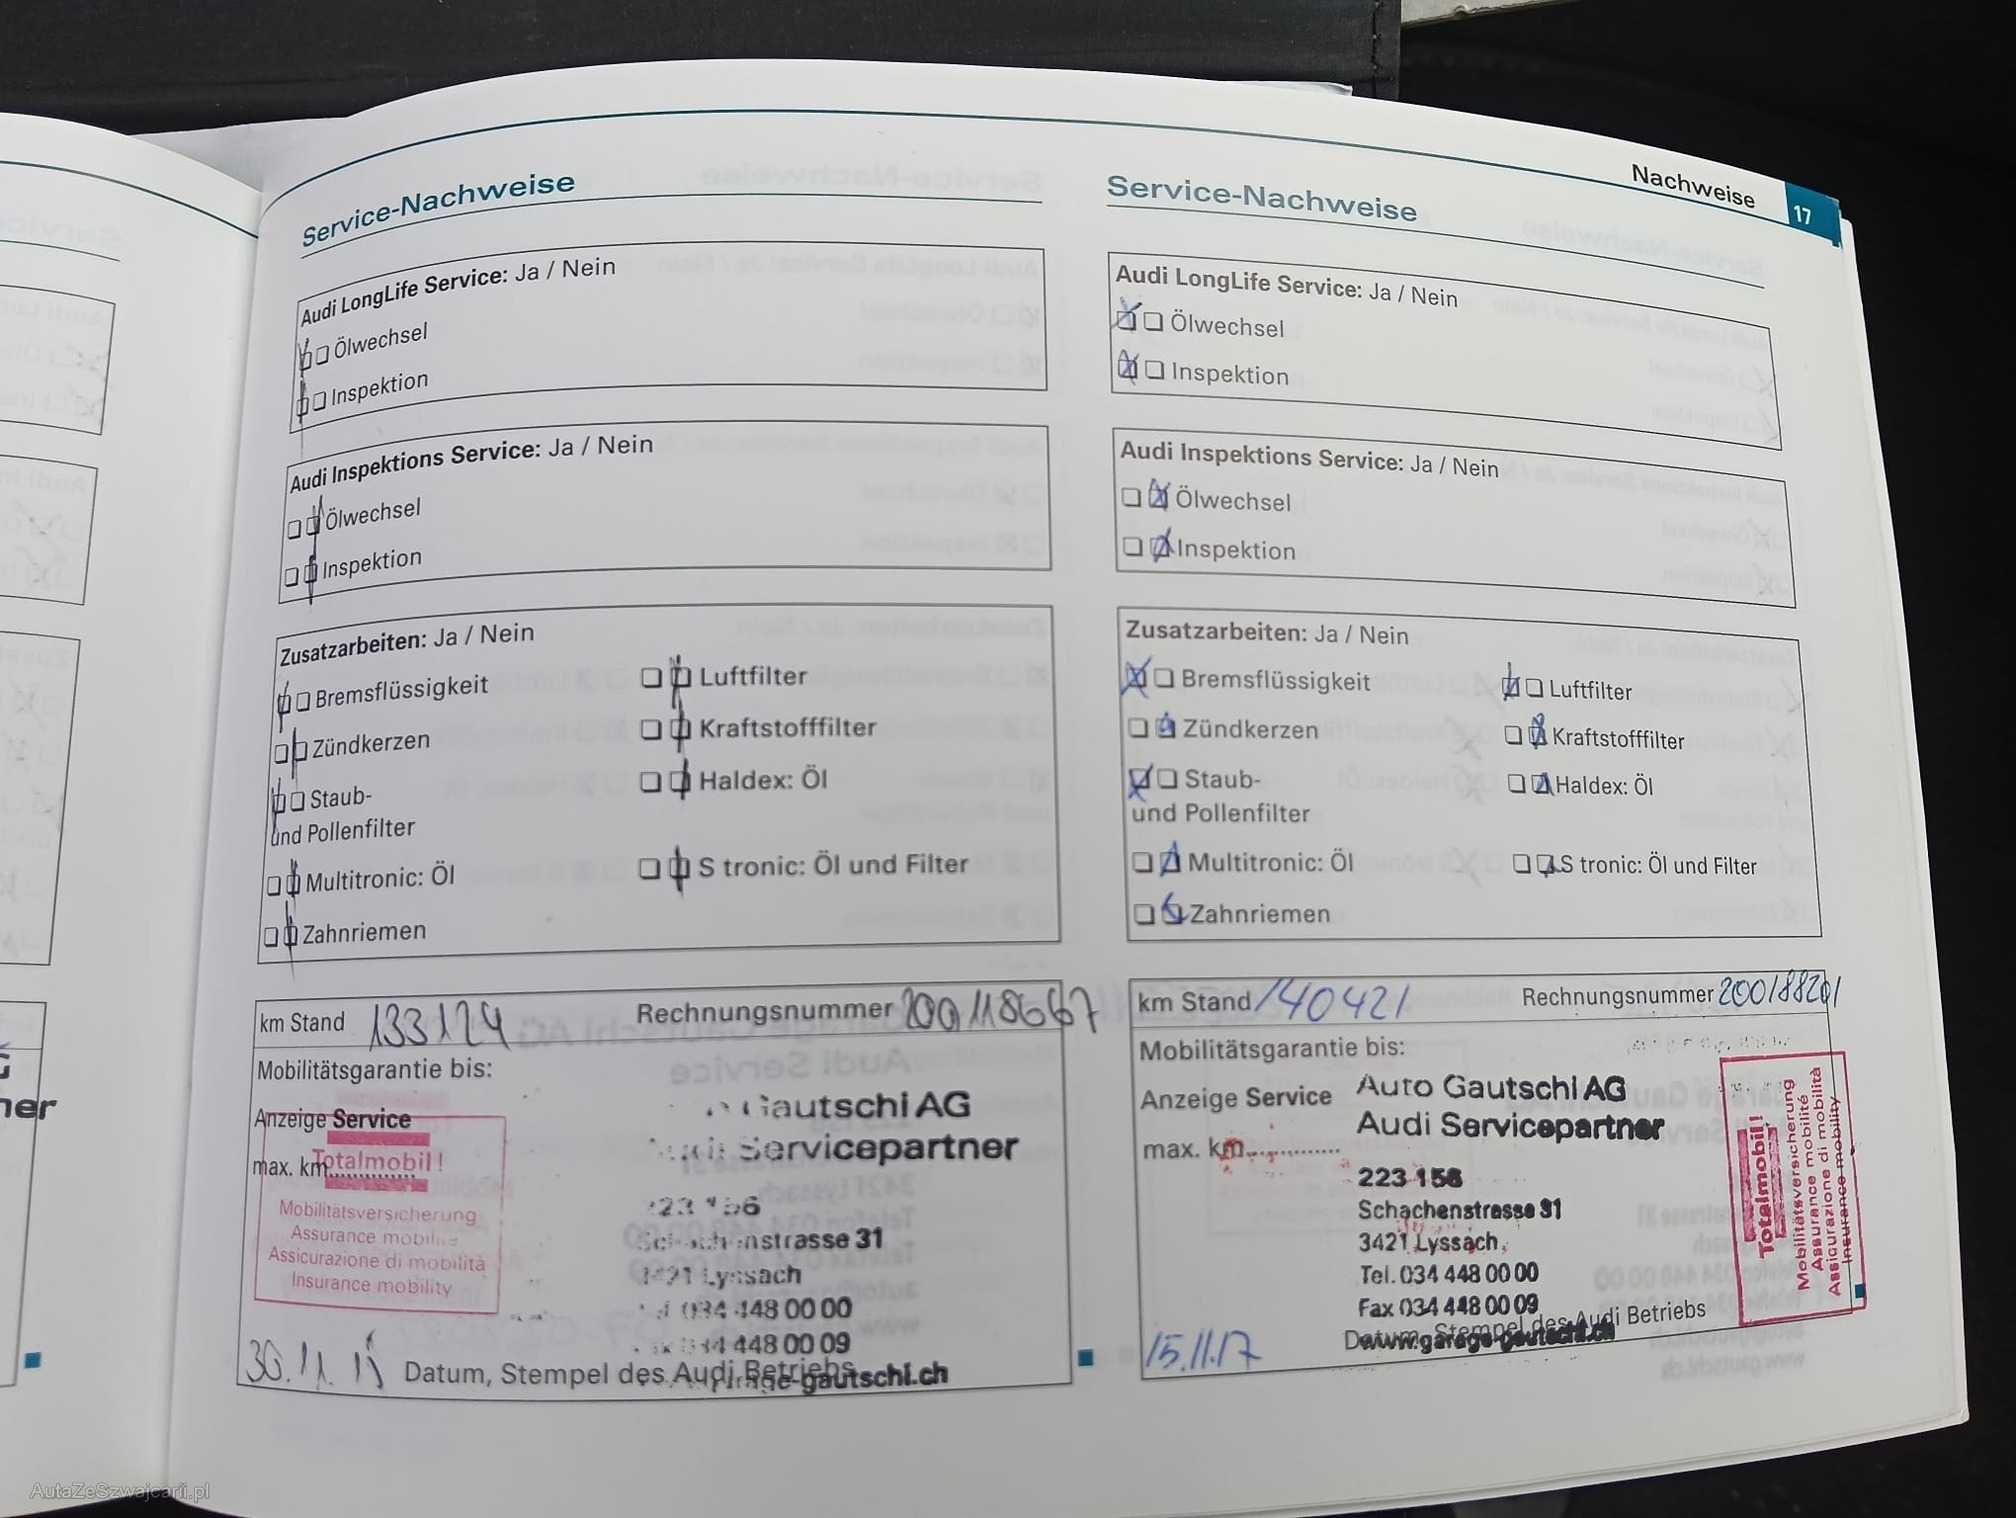 Nachweise 17
Service-Nachweise
Audi LongLife Service: Ja / Nein
Ölwechsel
Inspektion
Audi Inspektions Service: Ja / Nein
Ölwechsel
Inspektion
Zusatzarbeiten: Ja / Nein
Bremsflüssigkeit
Luftfilter
Zündkerzen
Kraftstofffilter
Staub-
und Pollenfilter
Haldex: Öl
Multitronic: Öl
S tronic: Öl und Filter
Zahnriemen
km Stand 133124
Rechnungsnummer 200118667
Mobilitätsgarantie bis:
Anzeige Service
max. km
Totalmobil!
Mobilitätsversicherung
Assurance mobilité
Assicurazione di mobilità
Insurance mobility
Gautschi AG
Servicepartner
Schachenstrasse 31
3421 Lyssach
034 448 00 00
034 448 00 09
garage-gautschi.ch
30.11.
Datum, Stempel des Audi Betriebs
Service-Nachweise
Audi LongLife Service: Ja / Nein
Ölwechsel
Inspektion
Audi Inspektions Service: Ja / Nein
Ölwechsel
Inspektion
Zusatzarbeiten: Ja / Nein
Bremsflüssigkeit
Luftfilter
Zündkerzen
Kraftstofffilter
Staub-
und Pollenfilter
Haldex: Öl
Multitronic: Öl
S tronic: Öl und Filter
Zahnriemen
km Stand 140421
Rechnungsnummer 200188201
Mobilitätsgarantie bis:
Anzeige Service
max. km
Auto Gautschi AG
Audi Servicepartner
223 156
Schachenstrasse 31
3421 Lyssach
Tel. 034 448 00 00
Fax 034 448 00 09
www.garage-gautschi.ch
15.11.17
Datum, Stempel des Audi Betriebs
Totalmobil!
Mobilitätsversicherung
Assurance mobilité
Assicurazione di mobilità
Insurance mobility
AutaZeSzwajcarii.pl